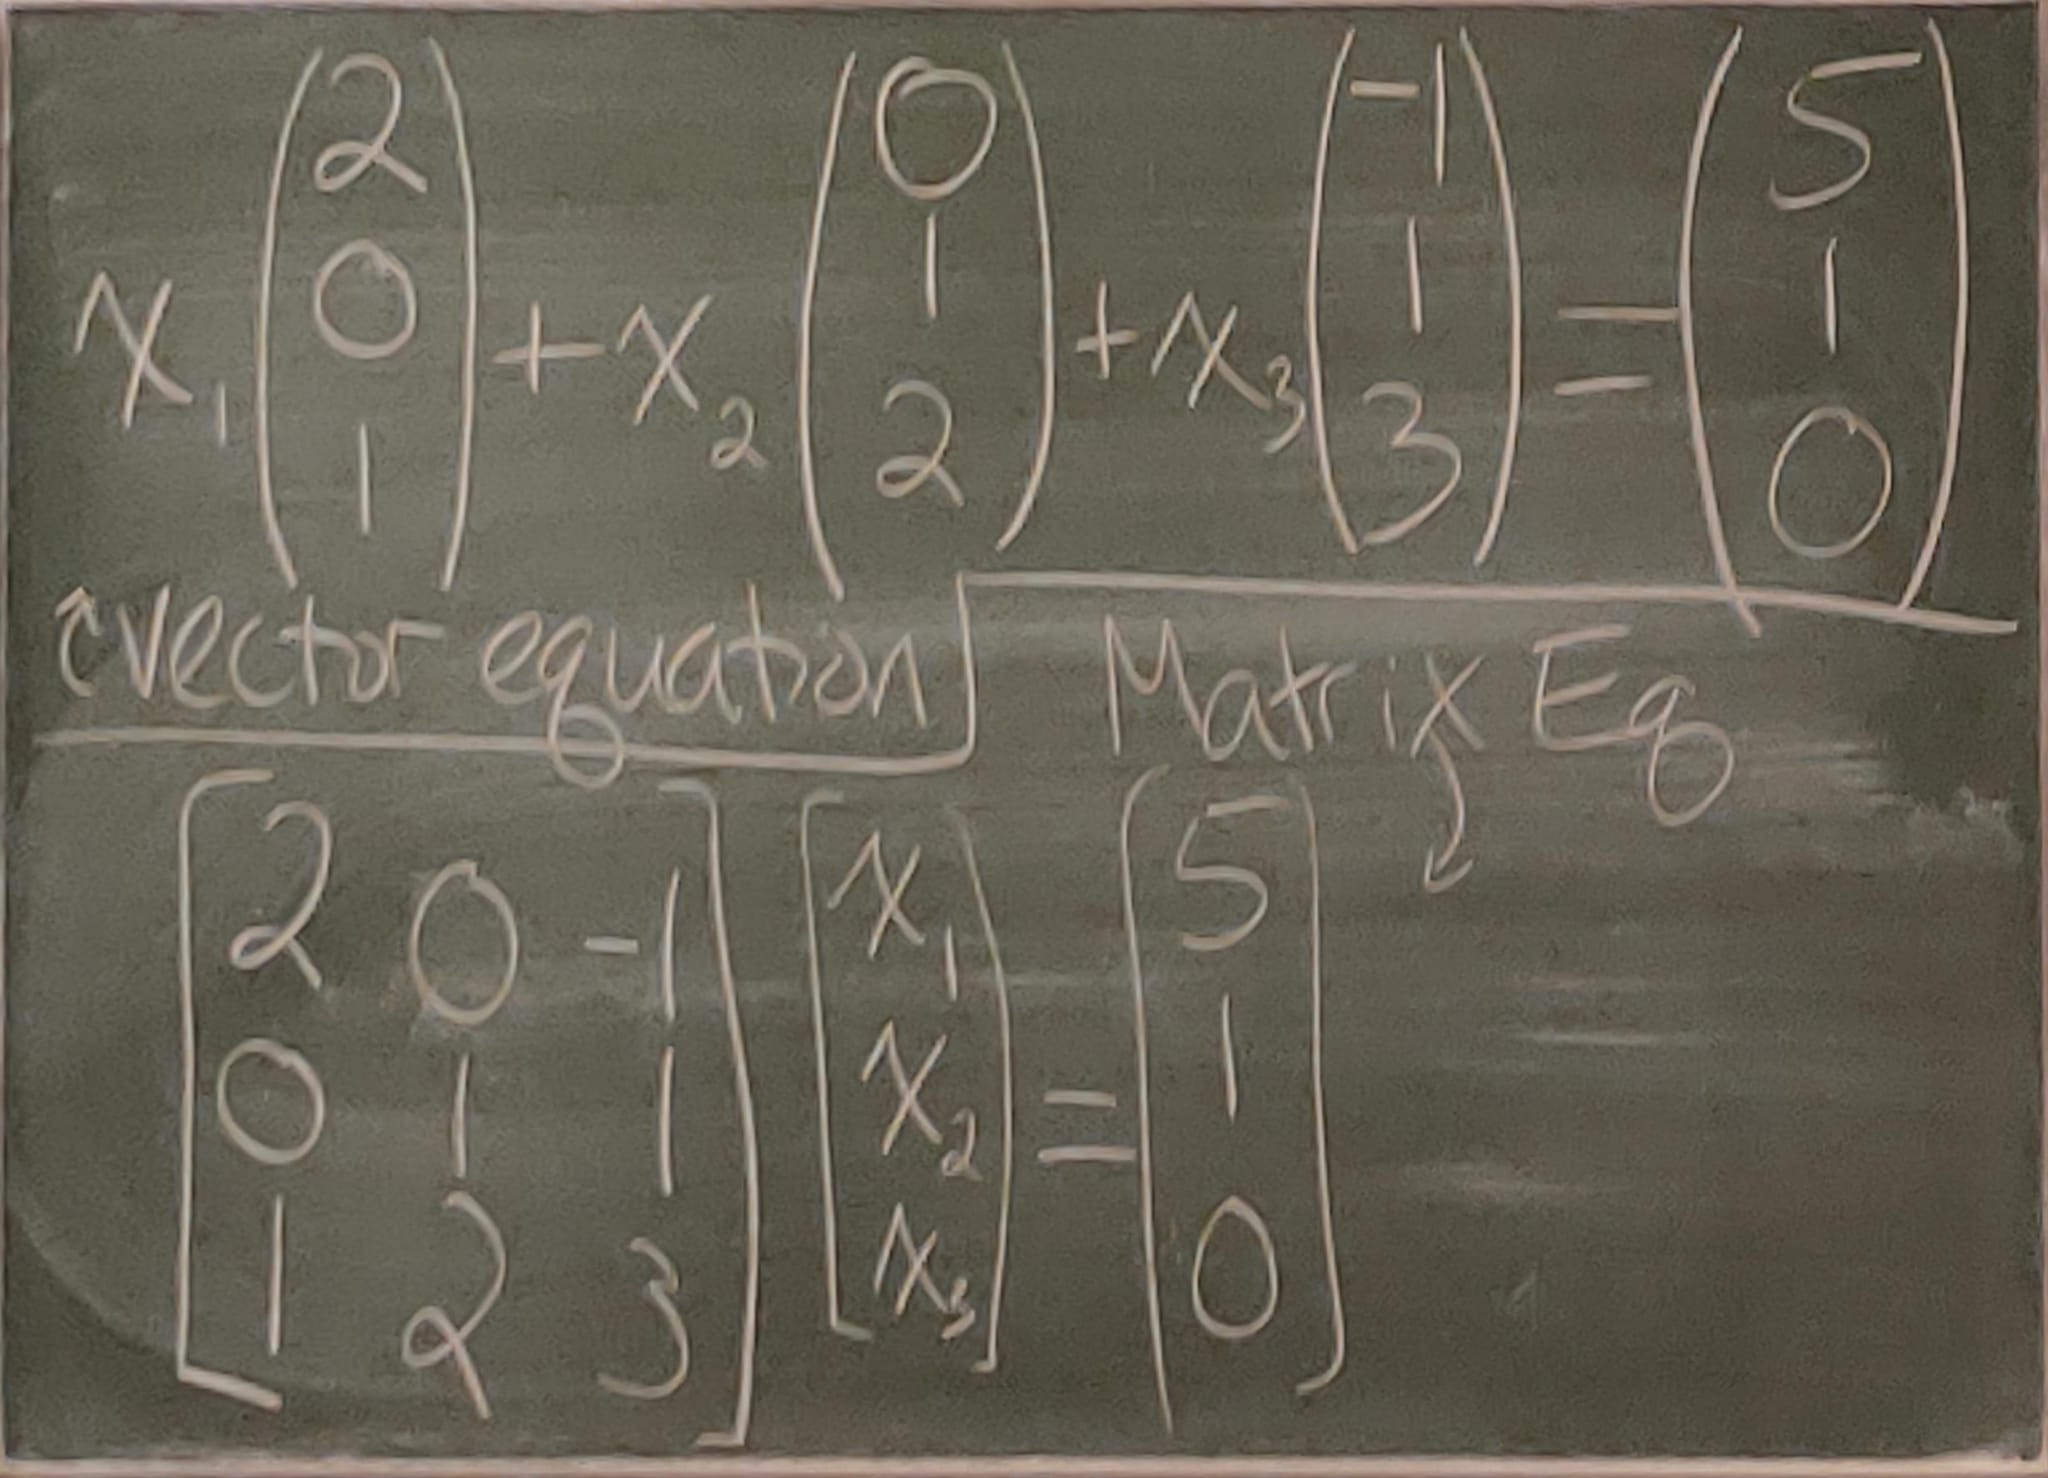 x₁ (2 0 1) + x₂ (0 1 2) + x₃ (-1 1 3) = (5 1 0)
↑ vector equation
Matrix Eq ↓
[2 0 -1] [x₁] = [5]
[0 1 1] [x₂] [1]
[1 2 3] [x₃] [0]